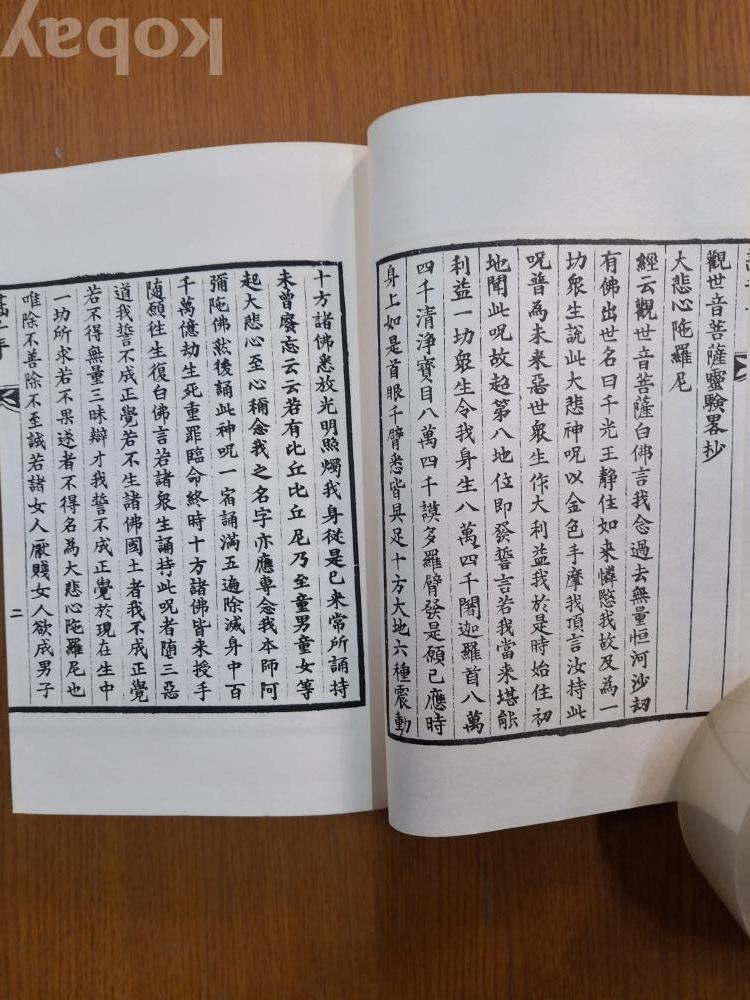 kobay
觀世音菩薩靈驗畧抄
大悲心陁羅尼
經云觀世音菩薩白佛言我念過去無量恒河沙刼
有佛出世名曰千光王靜住如来憐愍我故及為一
切衆生說此大悲神呪以金色手摩我頂言汝持此
呪普為未来惡世衆生作大利益我於是時始住初
地聞此呪故超第八地位即發誓言若我當来堪能
利益一切衆生令我身生八萬四千闍迦羅首八萬
四千清淨寶目八萬四千謨多羅臂發是願已應時
身上如是首眼千臂悉皆具足十方大地六種震動
十方諸佛悉放光明照燭我身從是已来常所誦持
未曾廢忘云云若有比丘比丘尼乃至童男童女等
起大悲心至心稱念我之名字亦應專念我本師阿
彌陁佛然後誦此神呪一宿誦滿五遍除滅身中百
千萬億劫生死重罪臨命終時十方諸佛皆来授手
随願往生復白佛言若諸衆生誦持此呪者墮三惡
道我誓不成正覺若不生諸佛國土者我不成正覺
若不得無量三昧辯才我誓不成正覺於現在生中
一切所求若不果遂者不得名為大悲心陁羅尼也
唯除不善除不至誠若諸女人厭賤女人欲成男子
二